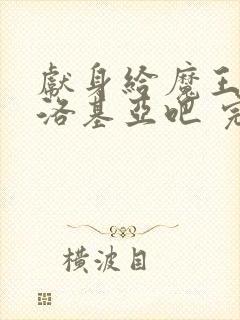 獻身給魔王
洛基亞吧 完
橫波目